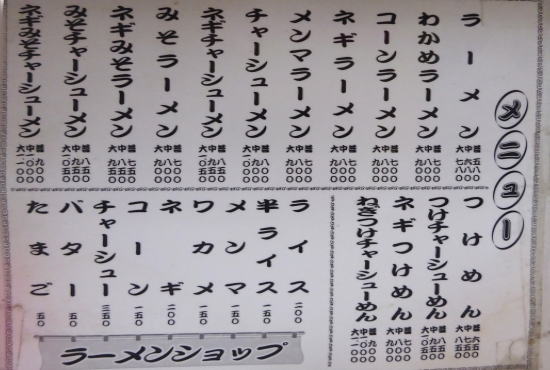 メニュー
ラーメン 並五八〇 中六八〇 大七八〇
わかめラーメン 並七〇〇 中八〇〇 大九〇〇
コーンラーメン 並七〇〇 中八〇〇 大九〇〇
ネギラーメン 並七〇〇 中八〇〇 大九〇〇
メンマラーメン 並七〇〇 中八〇〇 大九〇〇
チャーシューメン 並 中 大
ネギチャーシューメン 並 中 大
みそラーメン 並 中 大
ネギみそラーメン 並 中 大
みそチャーシューメン 並 中 大
ネギみそチャーシューメン 並 中 大
つけめん 並 中 大
つけチャーシューめん 並 中 大
ネギつけめん 並 中 大
ねぎつけチャーシューめん 並 中 大
ライス 二〇〇
半ライス 一五〇
メンマ 一五〇
ワカメ 一五〇
ネギ 二〇〇
コーン 一五〇
チャーシュー 三五〇
バター 五〇
たまご 五〇
ラーメンショップ